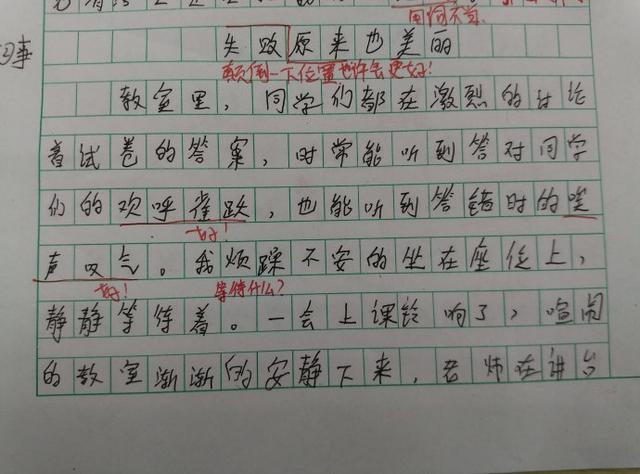 用词不当.
习事
失败原来也美丽
颠倒一下位置也许会更好!
教室里，同学们都在激烈的讨论
着试卷的答案，时常能听到答对同学
们的欢呼雀跃，也能听到答错时的唉
好!
声叹气。我烦躁不安的坐在座位上，
好!
等待什么?
静静等待着。一会上课铃响了，喧闹
的教室渐渐的安静下来，老师在讲台